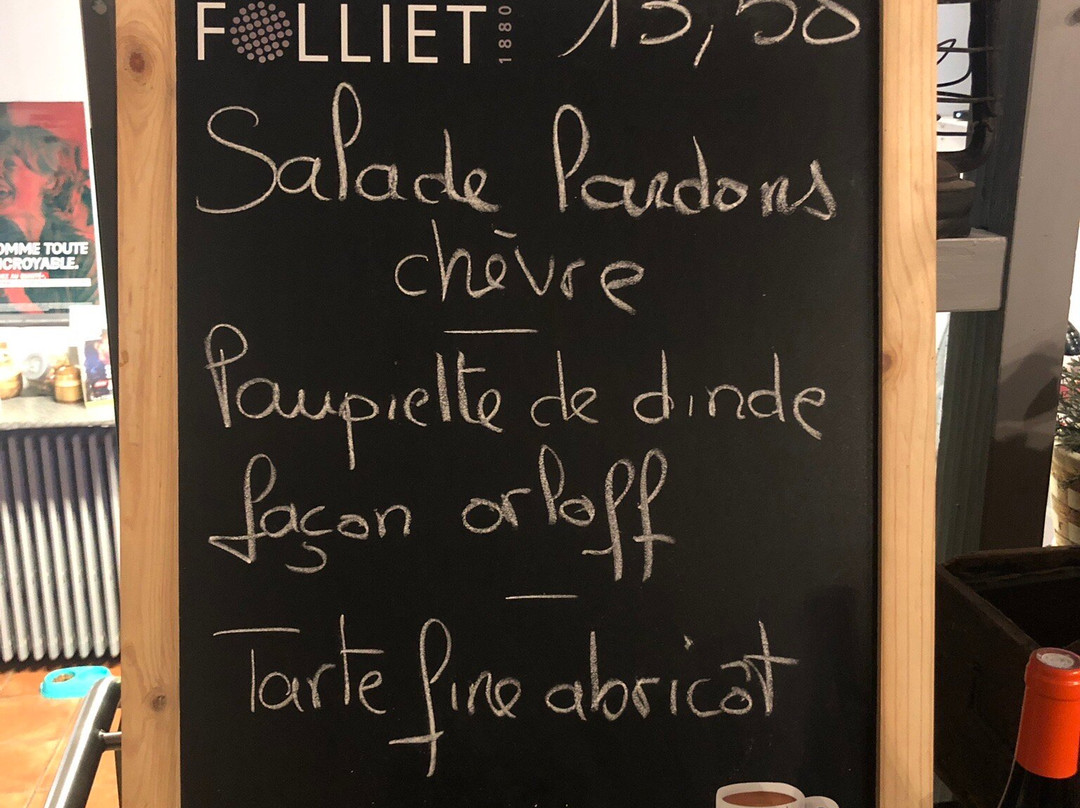 FOLLIET 1880
13,50
Salade lardons
chèvre
Paupiette de dinde
façon orloff
Tarte fine abricot
OMME TOUTE
NCROYABLE.